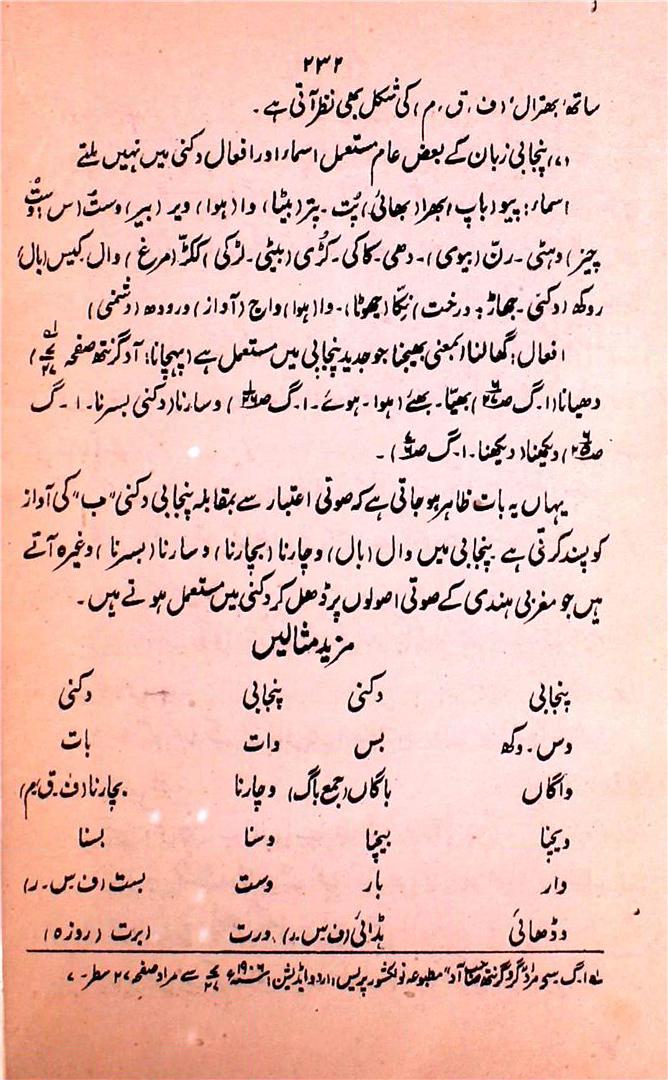 ۲۳۲
ساتھ 'بھترال' (ف، ق، م) کی شکل بھی نظر آتی ہے۔
(۷) پنجابی زبان کے بعض عام مستعمل اسماء اور افعال دکنی میں نہیں ملتے
اسماء: پیو (باپ) بھرا (بھائی) پُت۔ پتر (بیٹا) وا (ہوا) ویر (بیر) وست (س وست
چیز) وہٹی۔ رنّ (بیوی)۔ دھی۔ کاکی۔ کڑی (بیٹی۔ لڑکی) ککڑ (مرغ) وال۔ کیس (بال)
روکھ (دکنی۔ جھاڑ = درخت) نِکّا (چھوٹا)۔ وا (ہوا) واج (آواز) ورودھ (دشمنی)
افعال: گھالنا (بمعنی بھیجنا جو جدید پنجابی میں مستعمل ہے (پہچانا: آد گرنتھ صفحہ
دھیانا (ا۔گ ص) بھیّا۔ بھئے (ہوا۔ ہوئے۔ ا۔گ ص) وسارنا (دکنی بسرنا۔ ا۔گ
ص) ویکھنا (دیکھنا۔ ا۔گ ص)۔
یہاں یہ بات ظاہر ہو جاتی ہے کہ صوتی اعتبار سے بمقابلہ پنجابی دکنی "ب" کی آواز
کو پسند کرتی ہے پنجابی میں وال (بال) وچارنا (بچارنا) وسارنا (بسرنا) وغیرہ آتے
ہیں جو مغربی ہندی کے صوتی اصولوں پر ڈھل کر دکنی میں مستعمل ہوتے ہیں۔
مزید مثالیں
پنجابی دکنی پنجابی دکنی
وس۔ وکھ بس وات بات
واگاں باگاں (جمع باگ) وچارنا بچارنا (ف۔ق۔م)
ویچنا بیچنا وسنا بسنا
وار بار وست بست (ف س۔ ر)
وڈھائی بڈائی (ف س۔ ر) ورت برت (روزہ)
لے ا۔گ سے مراد گرو گرنتھ صاحب آد" مطبوعہ نولکشور پریس (اردو ایڈیشن) ۱۹۰۶ء سے مراد صفحہ ۲۷ سطر۔ ۷